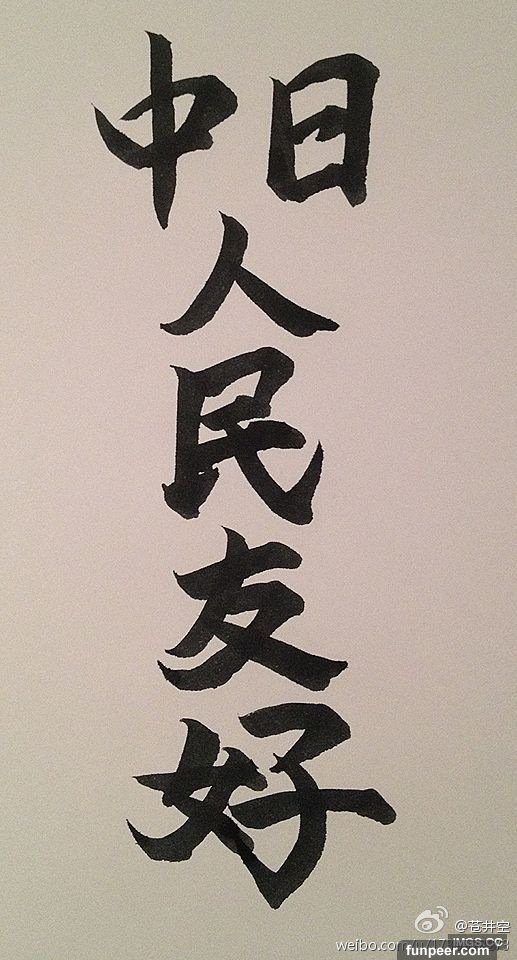 中日
人
民
友
好
@苍井空
IMGS.CC
funpeer.com